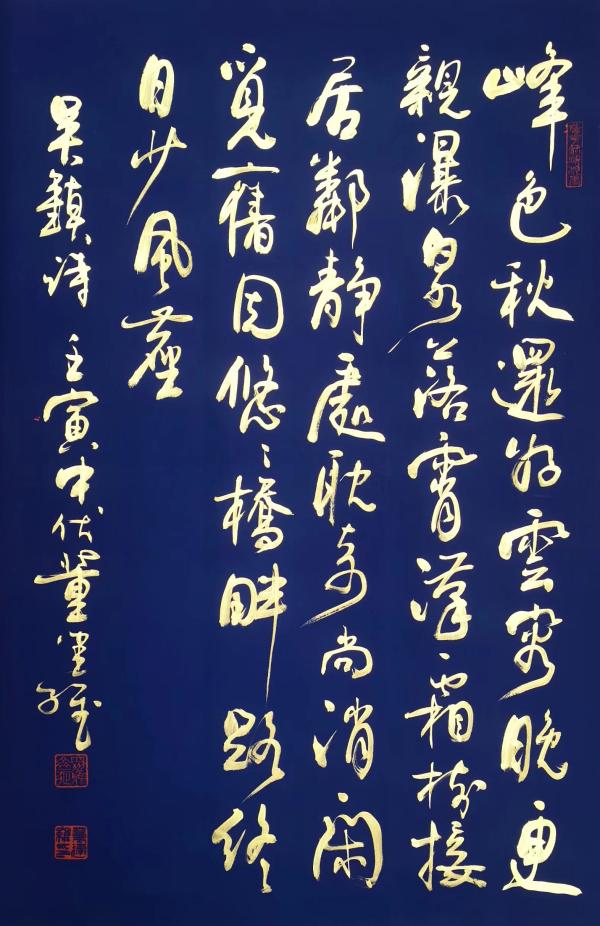 峰色秋還好雲容晚更
親瀑泉落霄漢霜樹接
居鄰靜處耽奇尚消閑
覓舊因悠々橋畔路終
日少風塵
吳鎮詩 壬寅中伏董